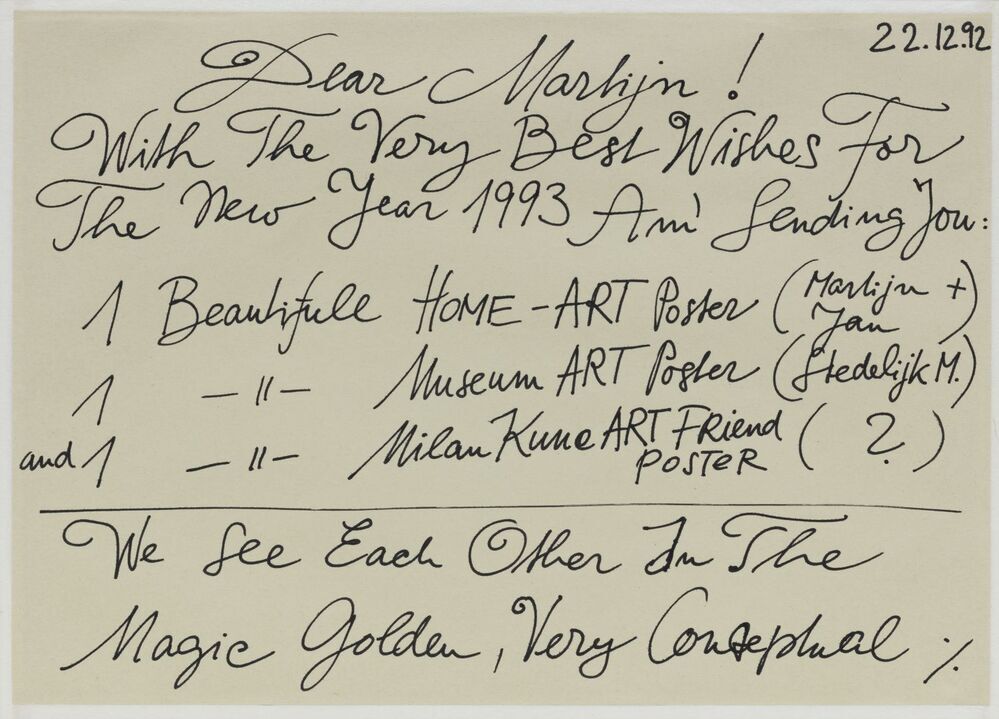 22.12.92
Dear Martijn!
With The Very Best Wishes For
The New Year 1993 Am' Sending You:
1 Beautifull HOME-ART Poster (Martijn + Jan)
1 —"— Museum ART Poster (Stedelijk M.)
and 1 —"— Milan Kunc ART FRiend POSTeR (?)
We See Each Other In The
Magic Golden, Very Conseptual ./.